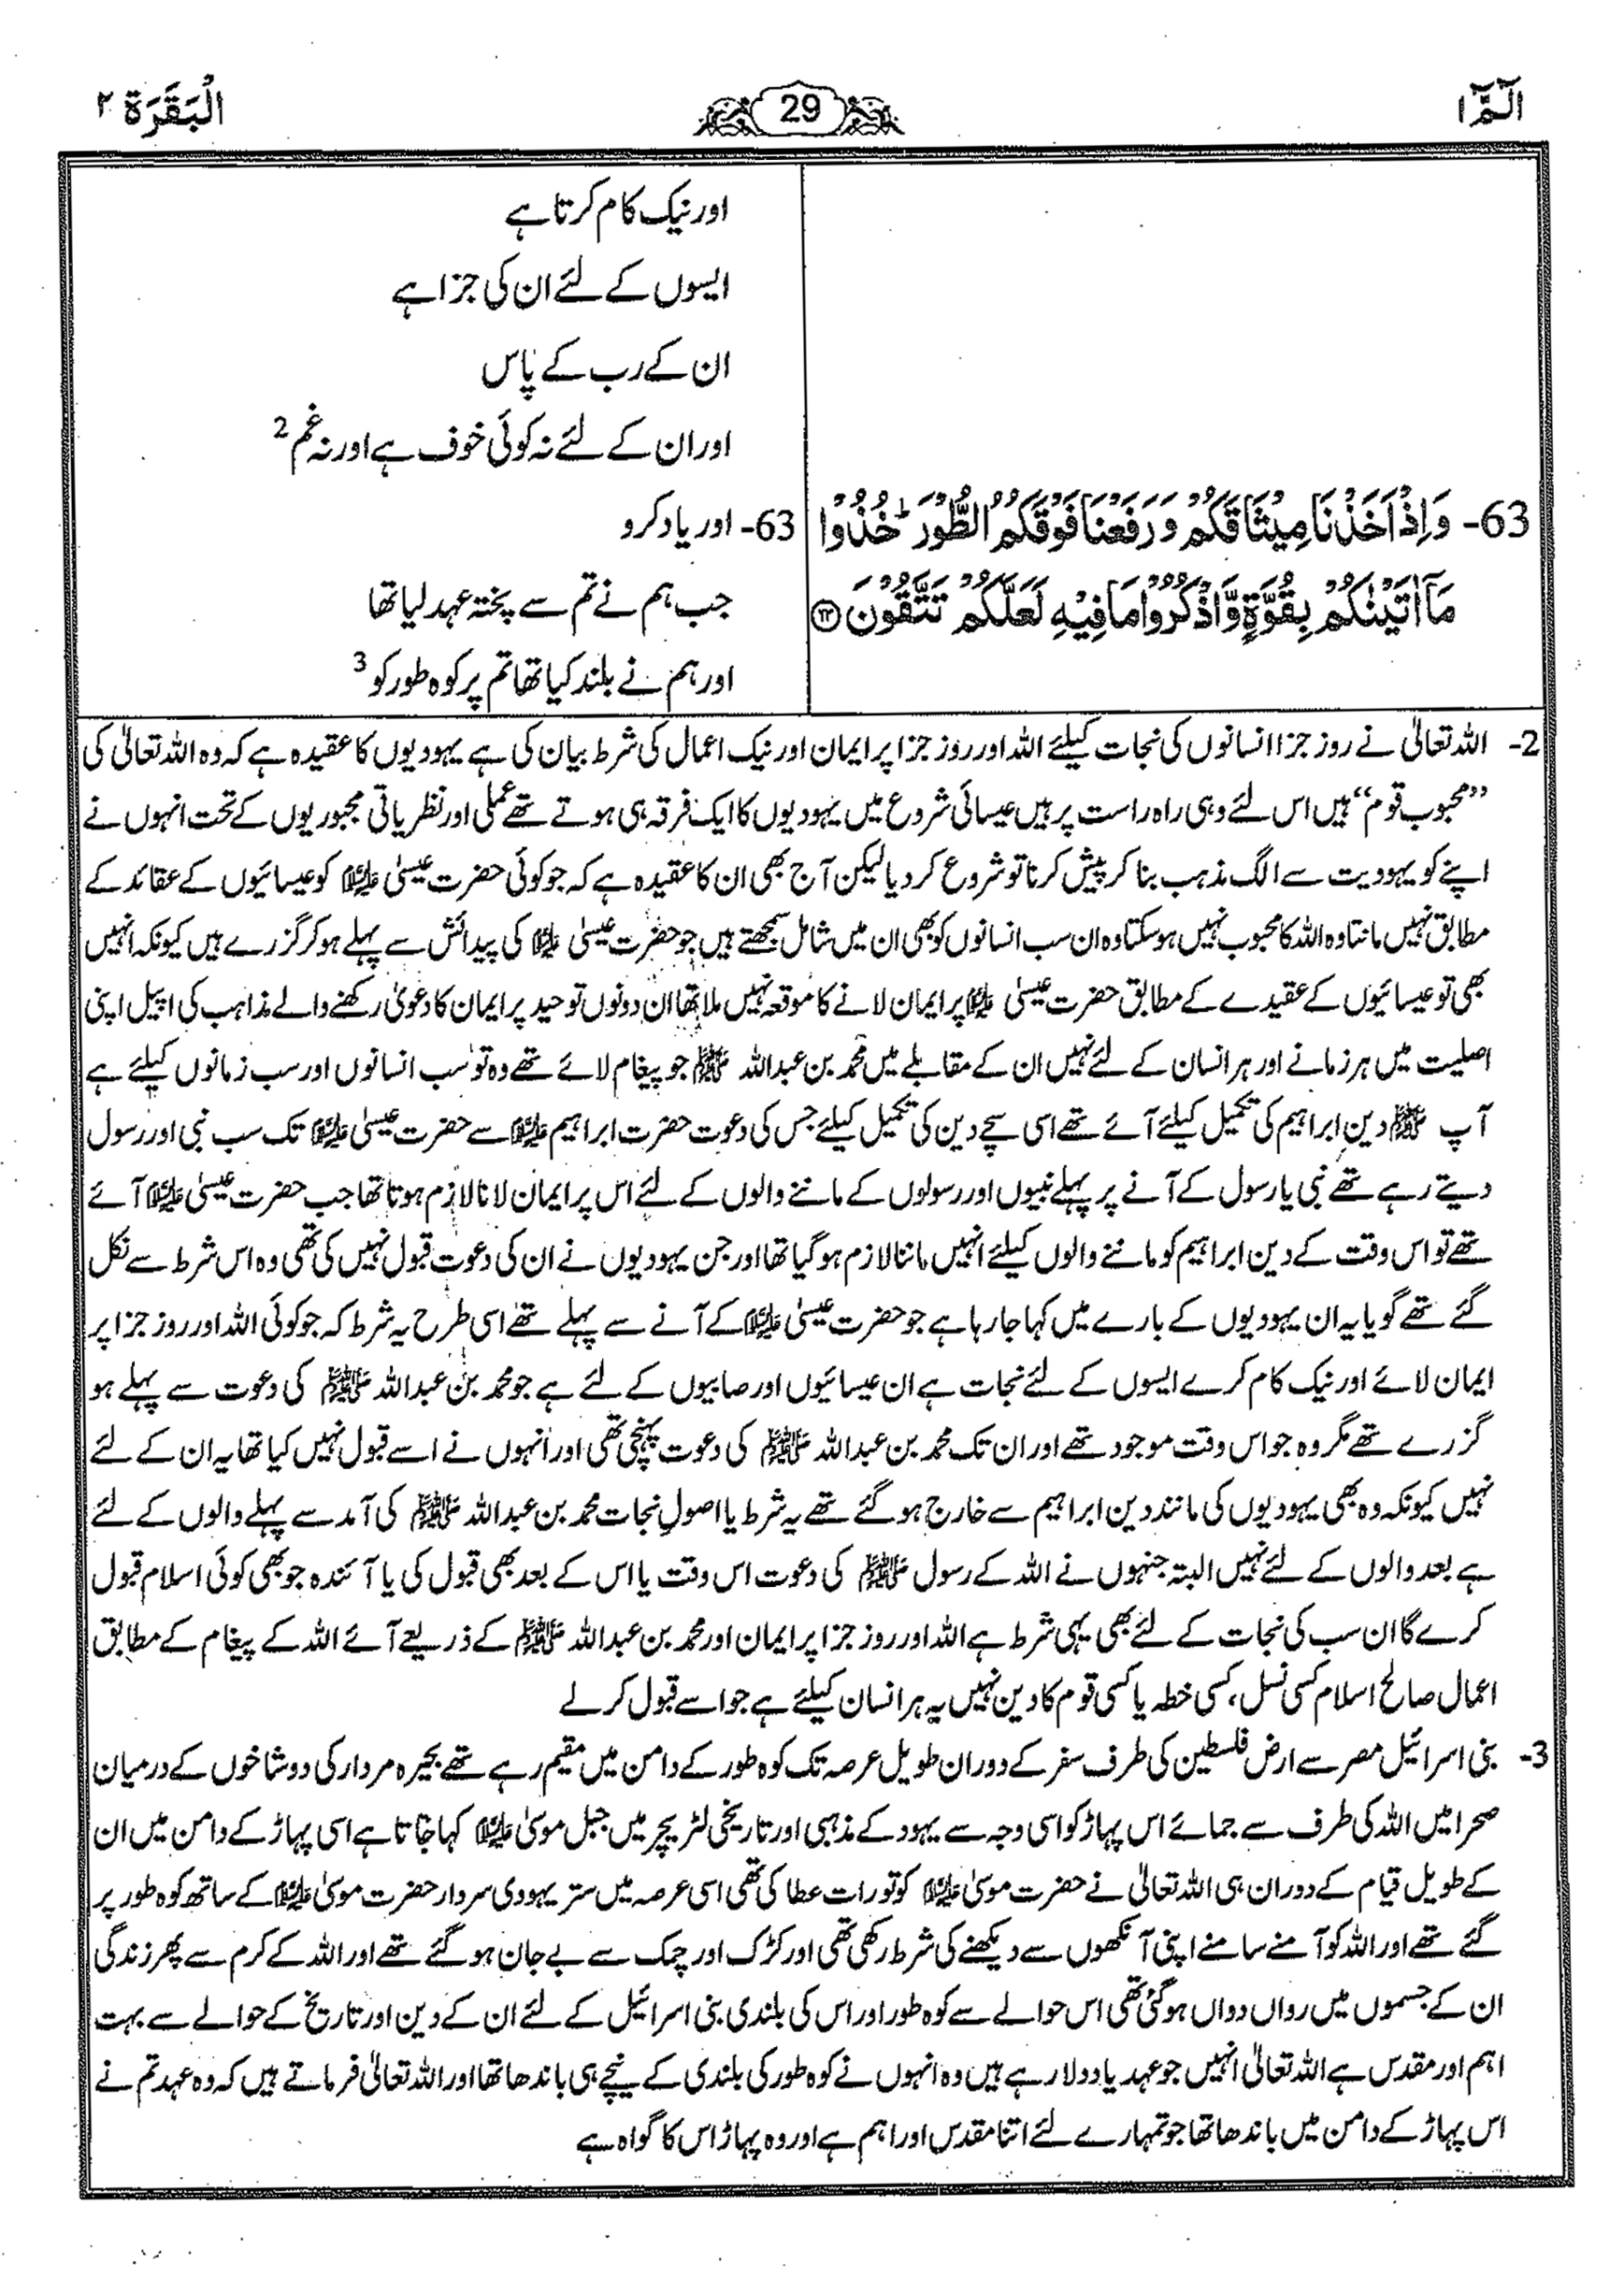 الٓمّٓ ۱
29
الْبَقَرَة ۲
اور نیک کام کرتا ہے
ایسوں کے لئے ان کی جزا ہے
ان کے رب کے پاس
اور ان کے لئے نہ کوئی خوف ہے اور نہ غم 2
63- وَاِذْ اَخَذْنَا مِيْثَاقَكُمْ وَرَفَعْنَا فَوْقَكُمُ الطُّوْرَ ؕ خُذُوْا
مَآ اٰتَيْنٰكُمْ بِقُوَّةٍ وَّاذْكُرُوْا مَا فِيْهِ لَعَلَّكُمْ تَتَّقُوْنَ ﴿۶۳﴾
63- اور یاد کرو
جب ہم نے تم سے پختہ عہد لیا تھا
اور ہم نے بلند کیا تھا تم پر کوہ طور کو 3
2- اللہ تعالیٰ نے روز جزا انسانوں کی نجات کیلئے اللہ اور روز جزا پر ایمان اور نیک اعمال کی شرط بیان کی ہے یہودیوں کا عقیدہ ہے کہ وہ اللہ تعالیٰ کی
”محبوب قوم“ ہیں اس لئے وہی راہ راست پر ہیں عیسائی شروع میں یہودیوں کا ایک فرقہ ہی ہوتے تھے عملی اور نظریاتی مجبوریوں کے تحت انہوں نے
اپنے کو یہودیت سے الگ مذہب بنا کر پیش کرنا تو شروع کر دیا لیکن آج بھی ان کا عقیدہ ہے کہ جو کوئی حضرت عیسیٰ علیہ السلام کو عیسائیوں کے عقائد کے
مطابق نہیں مانتا وہ اللہ کا محبوب نہیں ہو سکتا وہ ان سب انسانوں کو بھی ان میں شامل سمجھتے ہیں جو حضرت عیسیٰ علیہ السلام کی پیدائش سے پہلے ہو کر گزرے ہیں کیونکہ انہیں
بھی تو عیسائیوں کے عقیدے کے مطابق حضرت عیسیٰ علیہ السلام پر ایمان لانے کا موقعہ نہیں ملا تھا ان دونوں توحید پر ایمان کا دعویٰ رکھنے والے مذاہب کی اپیل اپنی
اصلیت میں ہر زمانے اور ہر انسان کے لئے نہیں ان کے مقابلے میں محمد بن عبداللہ ﷺ جو پیغام لائے تھے وہ تو سب انسانوں اور سب زمانوں کیلئے ہے
آپ ﷺ دین ابراہیم کی تکمیل کیلئے آئے تھے اسی سچے دین کی تکمیل کیلئے جس کی دعوت حضرت ابراہیم علیہ السلام سے حضرت عیسیٰ علیہ السلام تک سب نبی اور رسول
دیتے رہے تھے نبی یا رسول کے آنے پر پہلے نبیوں اور رسولوں کے ماننے والوں کے لئے اس پر ایمان لانا لازم ہوتا تھا جب حضرت عیسیٰ علیہ السلام آئے
تھے تو اس وقت کے دین ابراہیم کو ماننے والوں کیلئے انہیں ماننا لازم ہو گیا تھا اور جن یہودیوں نے ان کی دعوت قبول نہیں کی تھی وہ اس شرط سے نکل
گئے تھے گویا یہ ان یہودیوں کے بارے میں کہا جا رہا ہے جو حضرت عیسیٰ علیہ السلام کے آنے سے پہلے تھے اسی طرح یہ شرط کہ جو کوئی اللہ اور روز جزا پر
ایمان لائے اور نیک کام کرے ایسوں کے لئے نجات ہے ان عیسائیوں اور صابیوں کے لئے ہے جو محمد بن عبداللہ ﷺ کی دعوت سے پہلے ہو
گزرے تھے مگر وہ جو اس وقت موجود تھے اور ان تک محمد بن عبداللہ ﷺ کی دعوت پہنچی تھی اور انہوں نے اسے قبول نہیں کیا تھا یہ ان کے لئے
نہیں کیونکہ وہ بھی یہودیوں کی مانند دین ابراہیم سے خارج ہو گئے تھے یہ شرط یا اصول نجات محمد بن عبداللہ ﷺ کی آمد سے پہلے والوں کے لئے
ہے بعد والوں کے لئے نہیں البتہ جنہوں نے اللہ کے رسول ﷺ کی دعوت اس وقت یا اس کے بعد بھی قبول کی یا آئندہ جو بھی کوئی اسلام قبول
کرے گا ان سب کی نجات کے لئے بھی یہی شرط ہے اللہ اور روز جزا پر ایمان اور محمد بن عبداللہ ﷺ کے ذریعے آئے اللہ کے پیغام کے مطابق
اعمال صالح اسلام کسی نسل، کسی خطہ یا کسی قوم کا دین نہیں یہ ہر انسان کیلئے ہے جو اسے قبول کر لے
3- بنی اسرائیل مصر سے ارض فلسطین کی طرف سفر کے دوران طویل عرصہ تک کوہ طور کے دامن میں مقیم رہے تھے بحیرہ مردار کی دو شاخوں کے درمیان
صحرا میں اللہ کی طرف سے جمائے اس پہاڑ کو اسی وجہ سے یہود کے مذہبی اور تاریخی لٹریچر میں جبل موسیٰ علیہ السلام کہا جاتا ہے اسی پہاڑ کے دامن میں ان
کے طویل قیام کے دوران ہی اللہ تعالیٰ نے حضرت موسیٰ علیہ السلام کو تورات عطا کی تھی اسی عرصہ میں ستر یہودی سردار حضرت موسیٰ علیہ السلام کے ساتھ کوہ طور پر
گئے تھے اور اللہ کو آمنے سامنے اپنی آنکھوں سے دیکھنے کی شرط رکھی تھی اور کڑک اور چمک سے بے جان ہو گئے تھے اور اللہ کے کرم سے پھر زندگی
ان کے جسموں میں رواں دواں ہو گئی تھی اس حوالے سے کوہ طور اور اس کی بلندی بنی اسرائیل کے لئے ان کے دین اور تاریخ کے حوالے سے بہت
اہم اور مقدس ہے اللہ تعالیٰ انہیں جو عہد یاد دلا رہے ہیں وہ انہوں نے کوہ طور کی بلندی کے نیچے ہی باندھا تھا اور اللہ تعالیٰ فرماتے ہیں کہ وہ عہد تم نے
اس پہاڑ کے دامن میں باندھا تھا جو تمہارے لئے اتنا مقدس اور اہم ہے اور وہ پہاڑ اس کا گواہ ہے